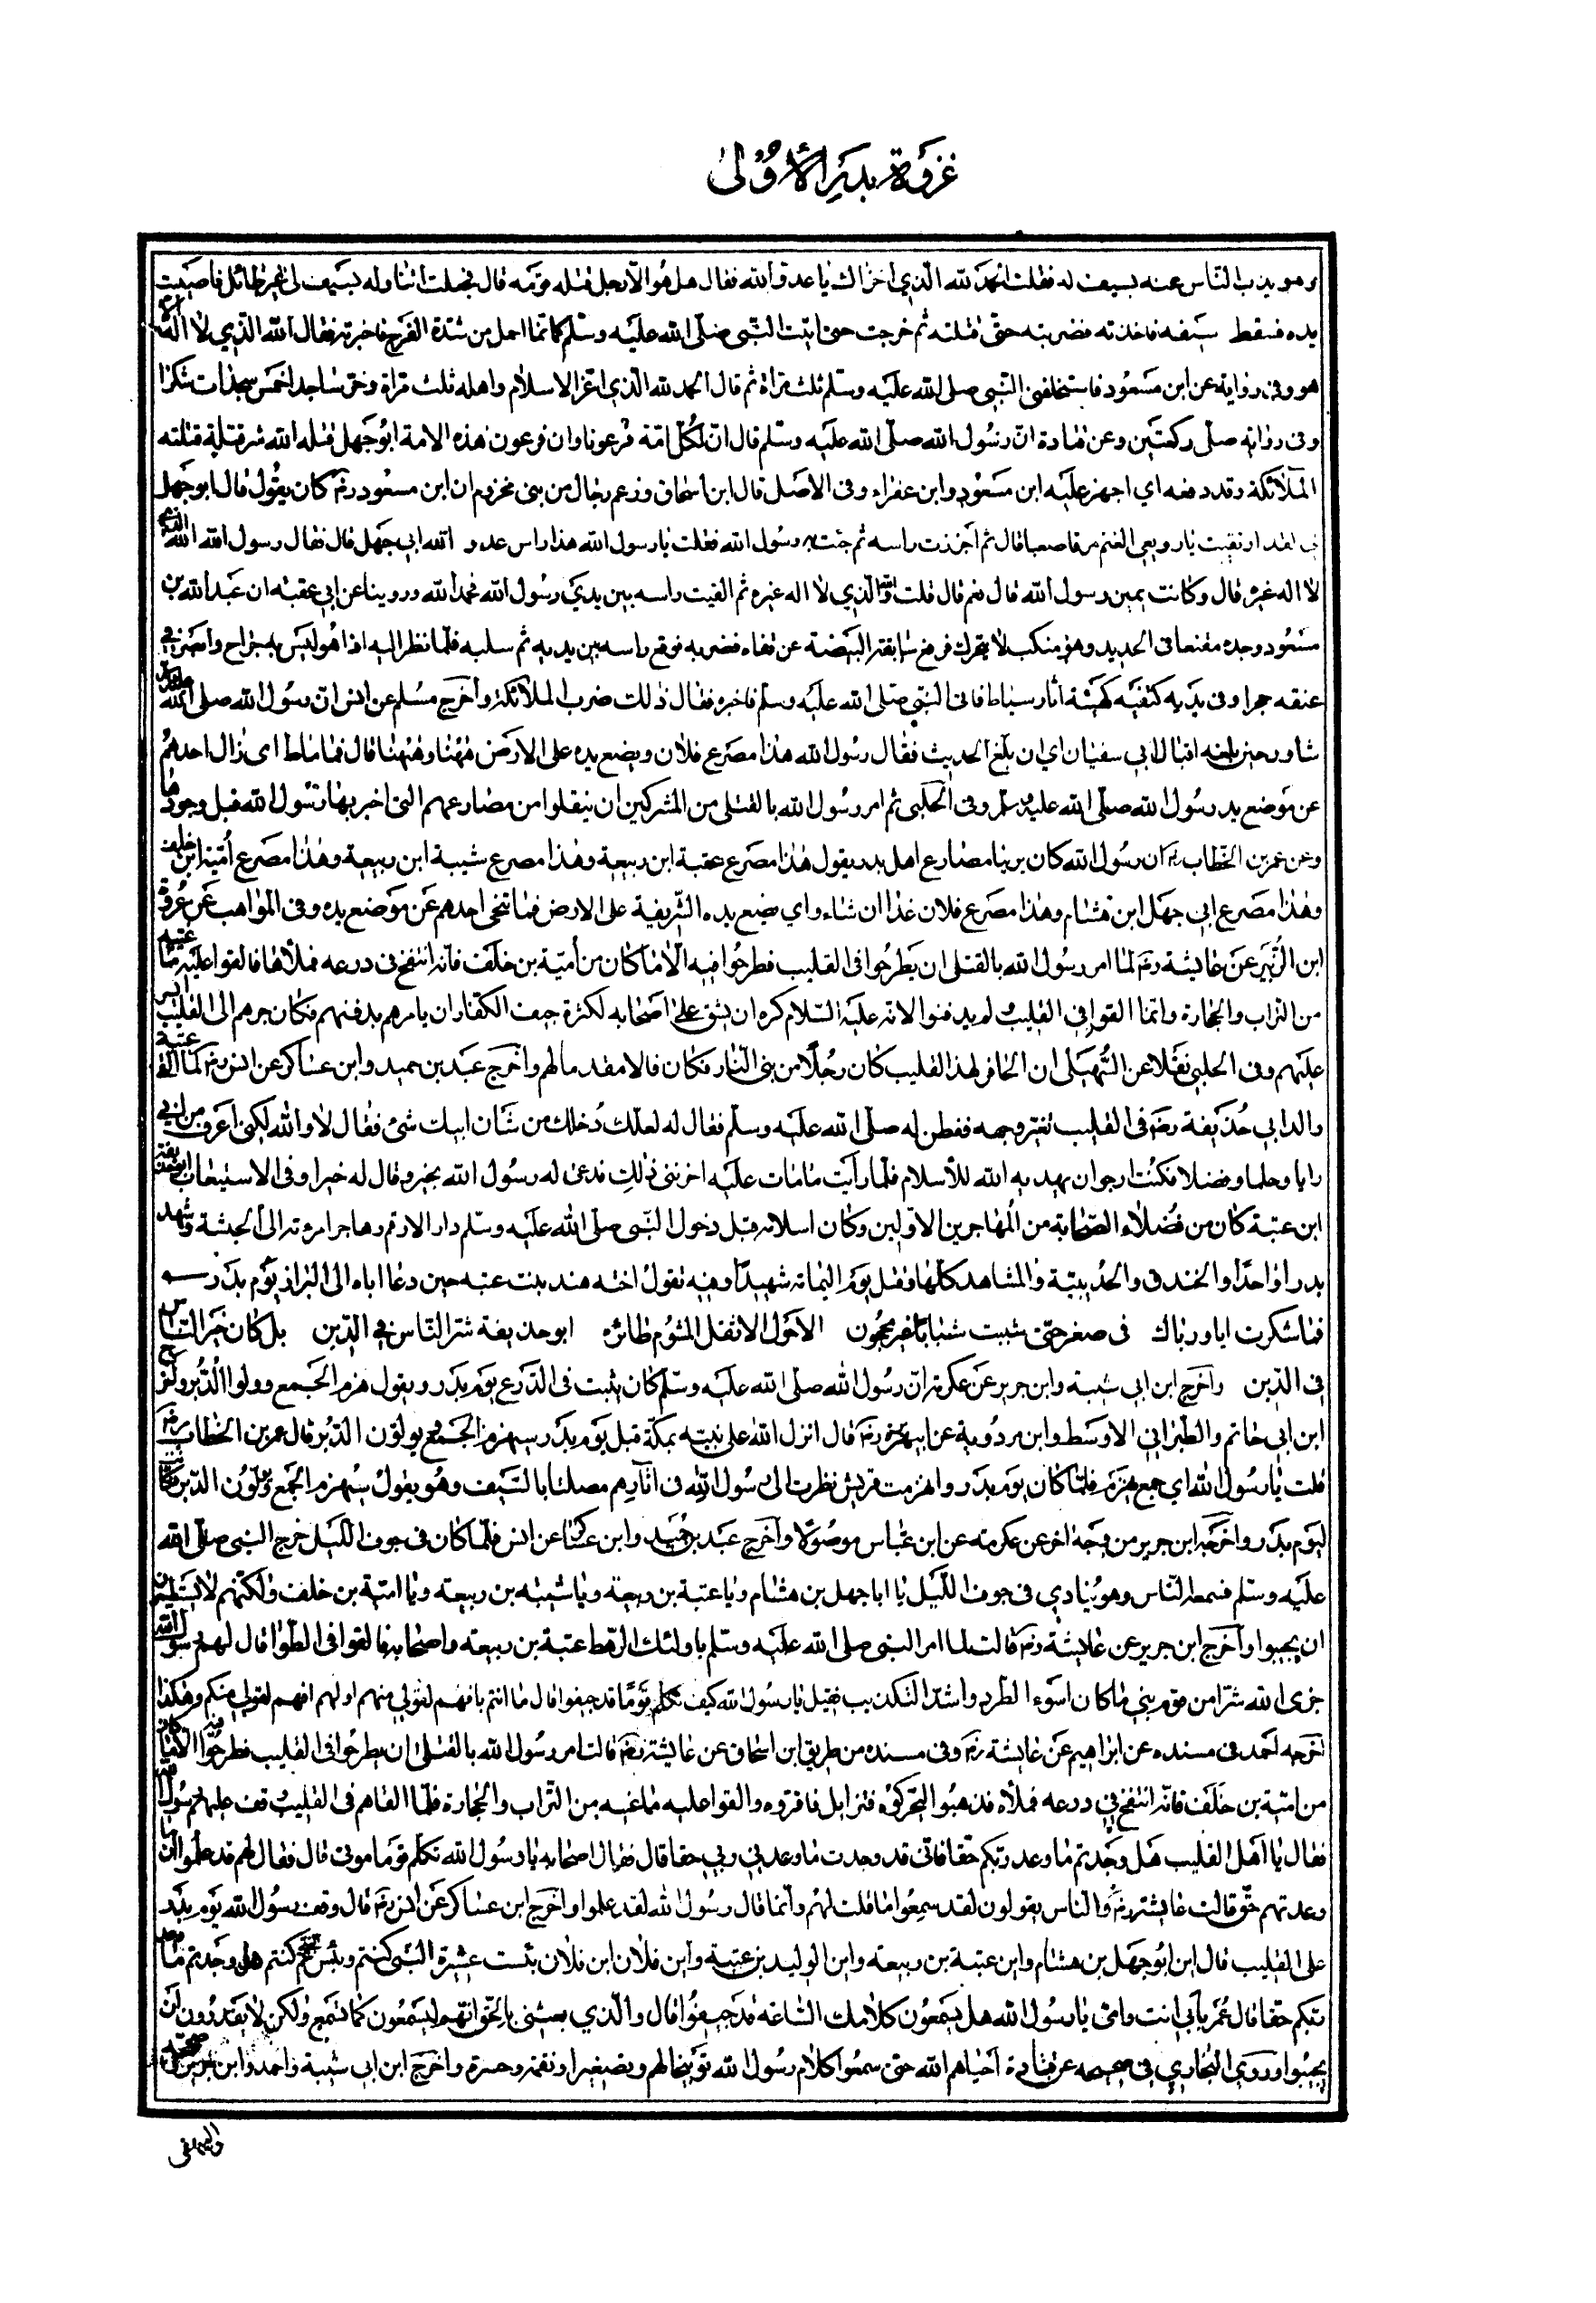 غزوة بدر الأولى
وهو يذب الناس عنه بسيف له فقلت الحمد لله الذي اخزاك يا عدو الله فقال هل هو الا رجل قتله قومه قال فجعلت اتناوله بسيف لي غير طائل فاصبت
يده فسقط سيفه فاخذته فضربته حتى قتلته ثم خرجت حتى اتيت النبي صلى الله عليه وسلم كانما احمل من شدة الفرح فاخبرته فقال الله الذي لا اله الا
هو وفى رواية عن ابن مسعود فاستحلفنى النبي صلى الله عليه وسلم ثلث مراة ثم قال الحمد لله الذي اعز الاسلام واهله ثلث مراة وخر ساجدا خمس سجدات شكرا
وفى رواية صلى ركعتين وعن قتادة ان رسول الله صلى الله عليه وسلم قال ان لكل امة فرعونا وان فرعون هذه الامة ابو جهل قتله الله شر قتلة قتلته
الملائكة وقد دفعه اي اجهز عليه ابن مسعود وابن عفراء وفى الاصل قال ابن اسحاق وزعم رجال من بنى مخزوم ان ابن مسعود رض كان يقول قال ابو جهل
لى لقد ارتقيت يا رويعي الغنم مرقا صعبا قال ثم اجتززت راسه ثم جئت به رسول الله فقلت يا رسول الله هذا راس عدو الله ابي جهل قال فقال رسول الله الله الذي
لا اله غيره قال وكانت يمين رسول الله قال نعم قال قلت والله الذي لا اله غيره ثم القيت راسه بين يدي رسول الله فحمد الله وروينا عن ابي عقبة ان عبد الله بن
مسعود وجده مقنعا فى الحديد وهو منكب لا يتحرك فرفع سابقة البيضة عن قفاه فضربه فوقع راسه بين يديه ثم سلبه فلما نظر اليه اذا هو ليس به جراح وابصر في
عنقه حدرا وفى يديه كتفيه كهيئة اثار سياط فاتى النبي صلى الله عليه وسلم فاخبره فقال ذلك ضرب الملائكة واخرج مسلم عن انس ان رسول الله صلى الله عليه وسلم
شاور حين بلغه اقبال ابي سفيان اي ان بلغ الحديث فقال رسول الله هذا مصرع فلان ويضع يده على الارض ههنا وههنا قال فما ماط اى زال احدهم
عن موضع يد رسول الله صلى الله عليه وسلم وفى الحلبى ثم امر رسول الله بالقتلى من المشركين ان ينقلوا من مصارعهم التى اخبر بها رسول الله قبل وجودها
وعن عمر بن الخطاب رض ان رسول الله كان يرينا مصارع اهل بدر يقول هذا مصرع عتبة ابن ربيعة وهذا مصرع شيبة ابن ربيعة وهذا مصرع أمية ابن خلف
وهذا مصرع ابي جهل ابن هشام وهذا مصرع فلان غدا ان شاء واي يضع يده الشريفة على الارض فما تنحى احدهم عن موضع يده وفى المواهب عن عروة
ابن الزبير عن عايشة رض لما امر رسول الله بالقتلى ان يطرحوا فى القليب فطرحوا فيه الا ما كان من أمية بن خلف فانه انتفخ فى درعه فملأها فالقوا عليه ما غيبه
من التراب والحجارة وانما القوا في القليب لم يدفنوا لانه عليه السلام كره ان يشق على اصحابه لكثرة جيف الكفار ان يامرهم بدفنهم فكان جرهم الى القليب ايسر
عليهم وفى الحلبي نقلا عن السهيلى ان الحافر لهذا القليب كان رجلا من بنى النار فكان فالا مقدما لهم واخرج عبد بن حميد وابن عساكر عن انس رض لما القى عتبة
والد ابي حذيفة رض فى القليب تغير وجهه ففطن له صلى الله عليه وسلم فقال له لعلك دخلك من شان ابيك شئ فقال لا والله لكنى اعرف من ابي
رايا وحلما وفضلا فكنت ارجو ان يهديه الله للأسلام فلما رايت ما مات عليه احزننى ذلك فدعى له رسول الله بخير وقال له خيرا وفى الاستيعاب ابو حذيفة
ابن عتبة كان من فضلاء الصحابة من المهاجرين الاولين وكان اسلامه قبل دخول النبي صلى الله عليه وسلم دار الارقم وهاجر امرءته الى الحبشة وشهد
بدرا واحدا والخندق والحديبية والمشاهد كلها وقتل يوم اليمامة شهيدا وفيه تقول اخته هند بنت عتبه حين دعا اباه الى البراز يوم بدر
فما شكرت ابا ورباك فى صغر حتى شببت شبابا غير محجون الاحول الاثعل المشوم طائره ابو حذيفة شر الناس في الدين بل كان خير الناس
فى الدين واخرج ابن ابي شيبة وابن جرير عن عكرمة ان رسول الله صلى الله عليه وسلم كان يثبت فى الدرع يوم بدر ويقول هزم الجمع وولوا الدبر واخرج
ابن ابي حاتم والطبرانى الاوسط وابن مردوية عن ابي هريرة رض قال انزل الله على نبيه بمكة قبل يوم بدر سيهزم الجمع ويولون الدبر قال عمر بن الخطاب رض
قلت يا رسول الله اي جمع يهزم فلما كان يوم بدر وانهزمت قريش نظرت الى رسول الله فى اثارهم مصلتا بالسيف وهو يقول سيهزم الجمع ويولون الدبر فكانت
ليوم بدر واخرجه ابن جرير من وجه اخر عن عكرمة عن ابن عباس موصولا واخرج عبد بن حميد وابن عساكر عن انس فلما كان فى جوف الليل خرج النبي صلى الله
عليه وسلم فسمعه الناس وهو ينادي فى جوف الليل يا ابا جهل بن هشام ويا عتبة بن ربيعة ويا شيبه بن ربيعته ويا امية بن خلف ولكنهم لا يستطيعون
ان يجيبوا واخرج ابن جرير عن عايشة رض قالت لما امر النبي صلى الله عليه وسلم باولئك الرهط عتبة بن ربيعته واصحابه فالقوا فى الطوا قال لهم رسول الله
جزى الله شرا من قوم بنى ما كان اسوء الطرد واشد التكذيب فقيل يا رسول الله كيف تكلم قوما قد جيفوا قال ما انتم بافهم لقولي منهم او لهم افهم لقولي منكم وهكذا
اخرجه احمد فى مسنده عن ابراهيم عن عايشة رض وفى مسنده من طريق ابن اسحاق عن عايشة رض قالت امر رسول الله بالقتلى ان يطرحوا فى القليب فطرحوا فيه الا ما كان
من امية بن خلف فانه انتفخ في درعه فملأه فذهبوا ليحركوه فتزايل فاقروه والقوا عليه ما غيبه من التراب والحجارة فلما القاهم فى القليب وقف عليهم رسول الله
فقال يا اهل القليب هل وجدتم ما وعد ربكم حقا فانى قد وجدت ما وعدني ربي حقا قال فقال اصحابه يا رسول الله تكلم قوما موتى قال فقال لهم قد علموا ان ما
وعدتهم حق قالت عايشة رض والناس يقولون لقد سمعوا ما قلت لهم وانما قال رسول الله لقد علموا واخرج ابن عساكر عن انس رض قال وقف رسول الله يوم بدر
على القليب قال ابن ابو جهل بن هشام وابن عتبة بن ربيعته وابن الوليد بن عتبة وابن فلان ابن فلان بئست عشيرة النبى كنتم وبئس كنتم هل وجدتم ما وعد
ربكم حقا قال عمر بأبي انت وامى يا رسول الله هل يسمعون كلامك الساعة قد جيفوا قال والذي بعثنى بالحق انهم ليسمعون كما تسمع ولكن لا يقدرون ان
يجيبوا وروى البخاري في صحيحه عن قتادة احياهم الله حتى سمعوا كلام رسول الله توبيخا لهم وتصغيرا ونقمة وحسرة واخرج ابن ابي شيبة واحمد وابن
والبيهقى